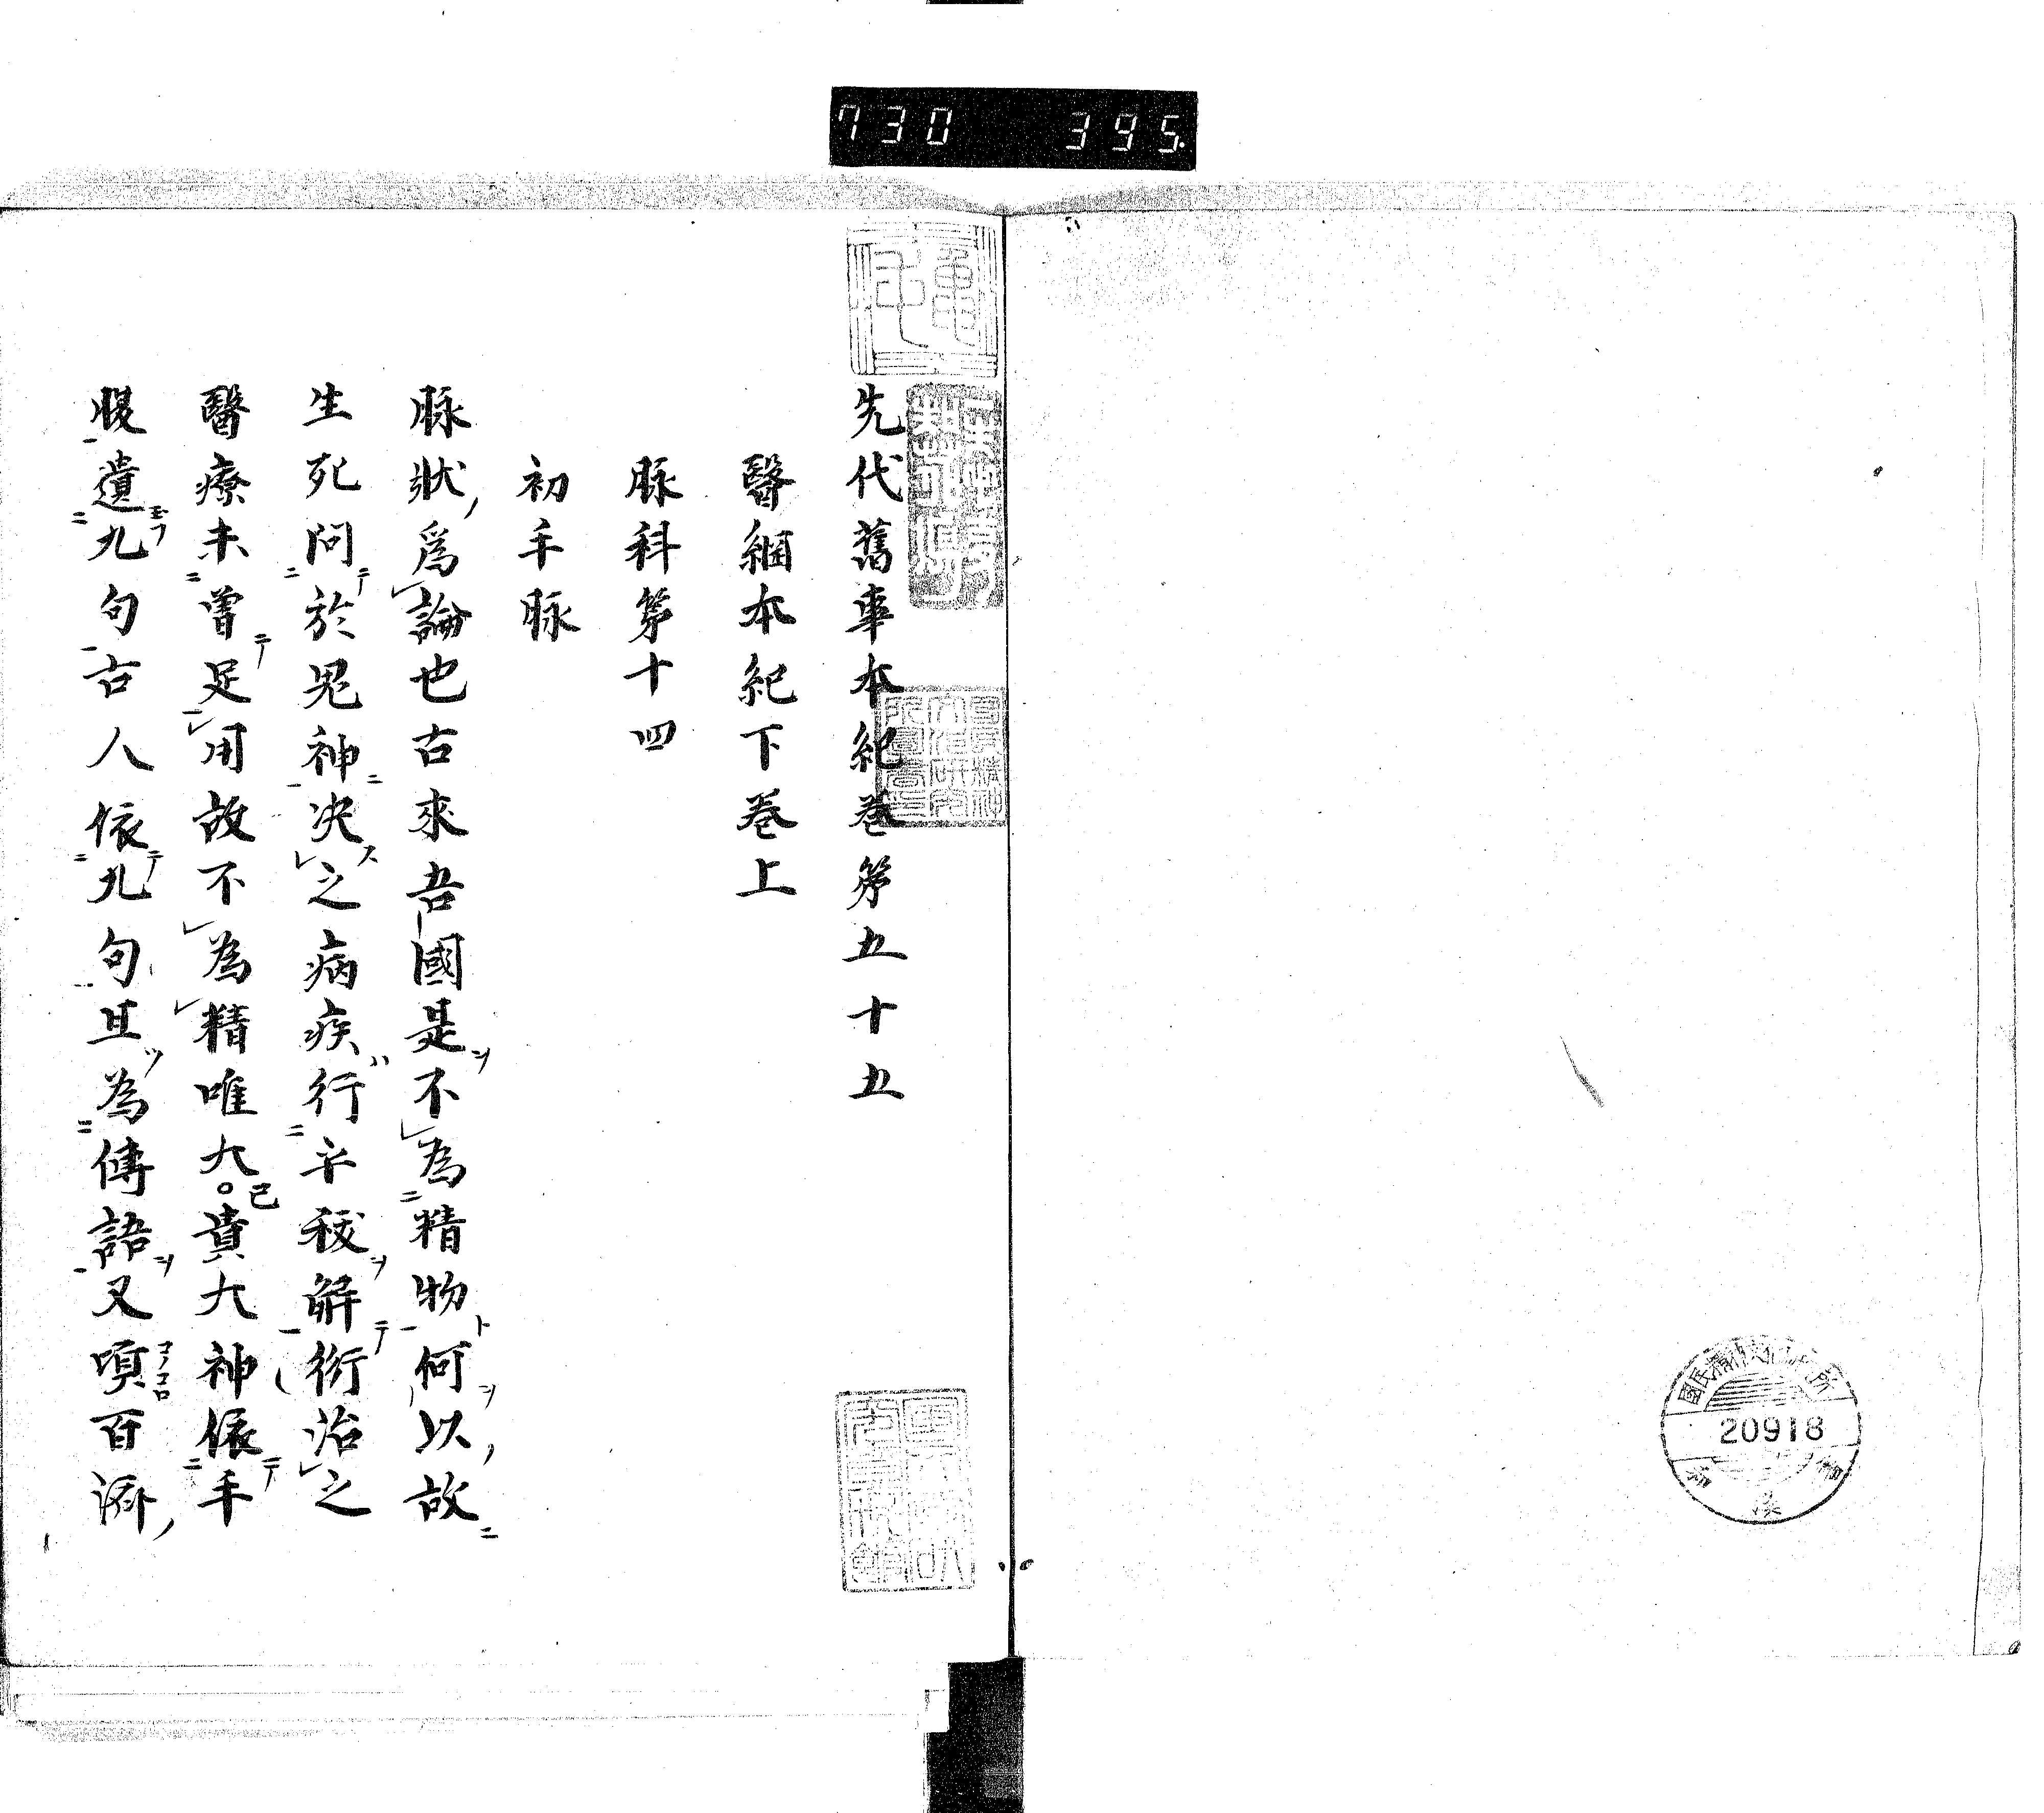 730 395
先代舊事本紀巻第五十五
醫綱本紀下巻上
脉科第十四
初手脉
脉狀爲論也古來吾國是不為精物何以故
生死問於鬼神决之病疾行祓解術治之
醫療未曽足用故不為精唯大己貴大神依手
脹遺九句古人依九句且為傳語又頃百済
20918